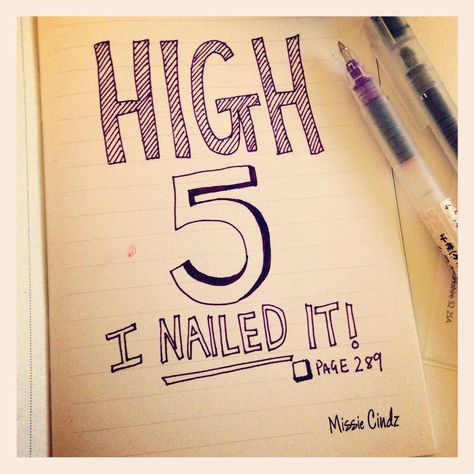 HIGH
5
I NAILED IT!
PAGE 289
Missie Cindz